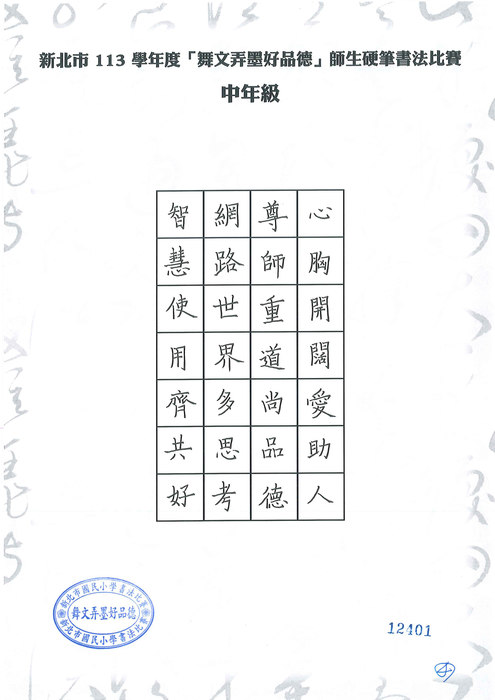 新北市 113 學年度「舞文弄墨好品德」師生硬筆書法比賽
中年級
心胸開闊愛助人
尊師重道尚品德
網路世界多思考
智慧使用齊共好
新北市國民小學書法比賽
舞文弄墨好品德
新北市國民小學書法比賽
12401